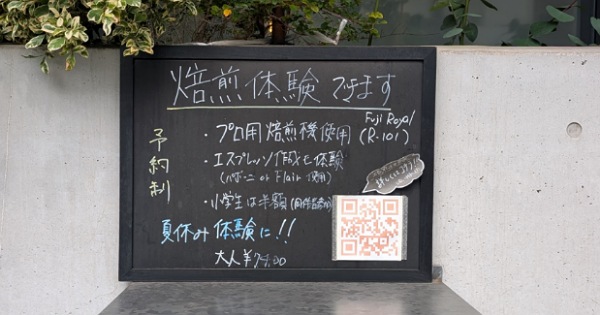 焙煎体験できます
予約制
・プロ用焙煎機使用 (Fuji Royal R-101)
・エスプレッソ作成も体験
( or Flair 使用)
・小学生は半額
夏休み体験に!!
大人¥